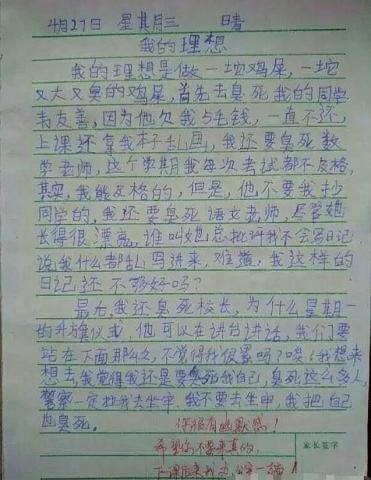 4月27日 星其月三 晴
我的理想
我的理想是做一坨鸡屎,一坨
又大又臭的鸡屎,首先去臭死我的同学
韦友善,因为他欠我5毛钱,一直不还,
上课还拿我本子乱画,我还要臭死数
学老师,这个学期我每次考试都不及格,
其实,我能及格的,但是,他不要我抄
同学的,我还要臭死语文老师,尽管她
长得很漂亮,谁叫她总批评我不会写日记
说我什么都乱写进来,难道,我这样的
日记还不够好吗?
最后,我还臭死校长,为什么星期一
的升旗仪式他可以在讲台讲话,我们要
站在下面那么久,不觉得我很累吗?唉!我想来
想去,我觉得我还是要臭死我自己,臭死这么多人,
警察一定拉我去坐牢,我不要去坐牢,我把自己
也臭死。
你很有幽默感!
希望你不要来真的,
下课后来我办公室一趟!
家长签字